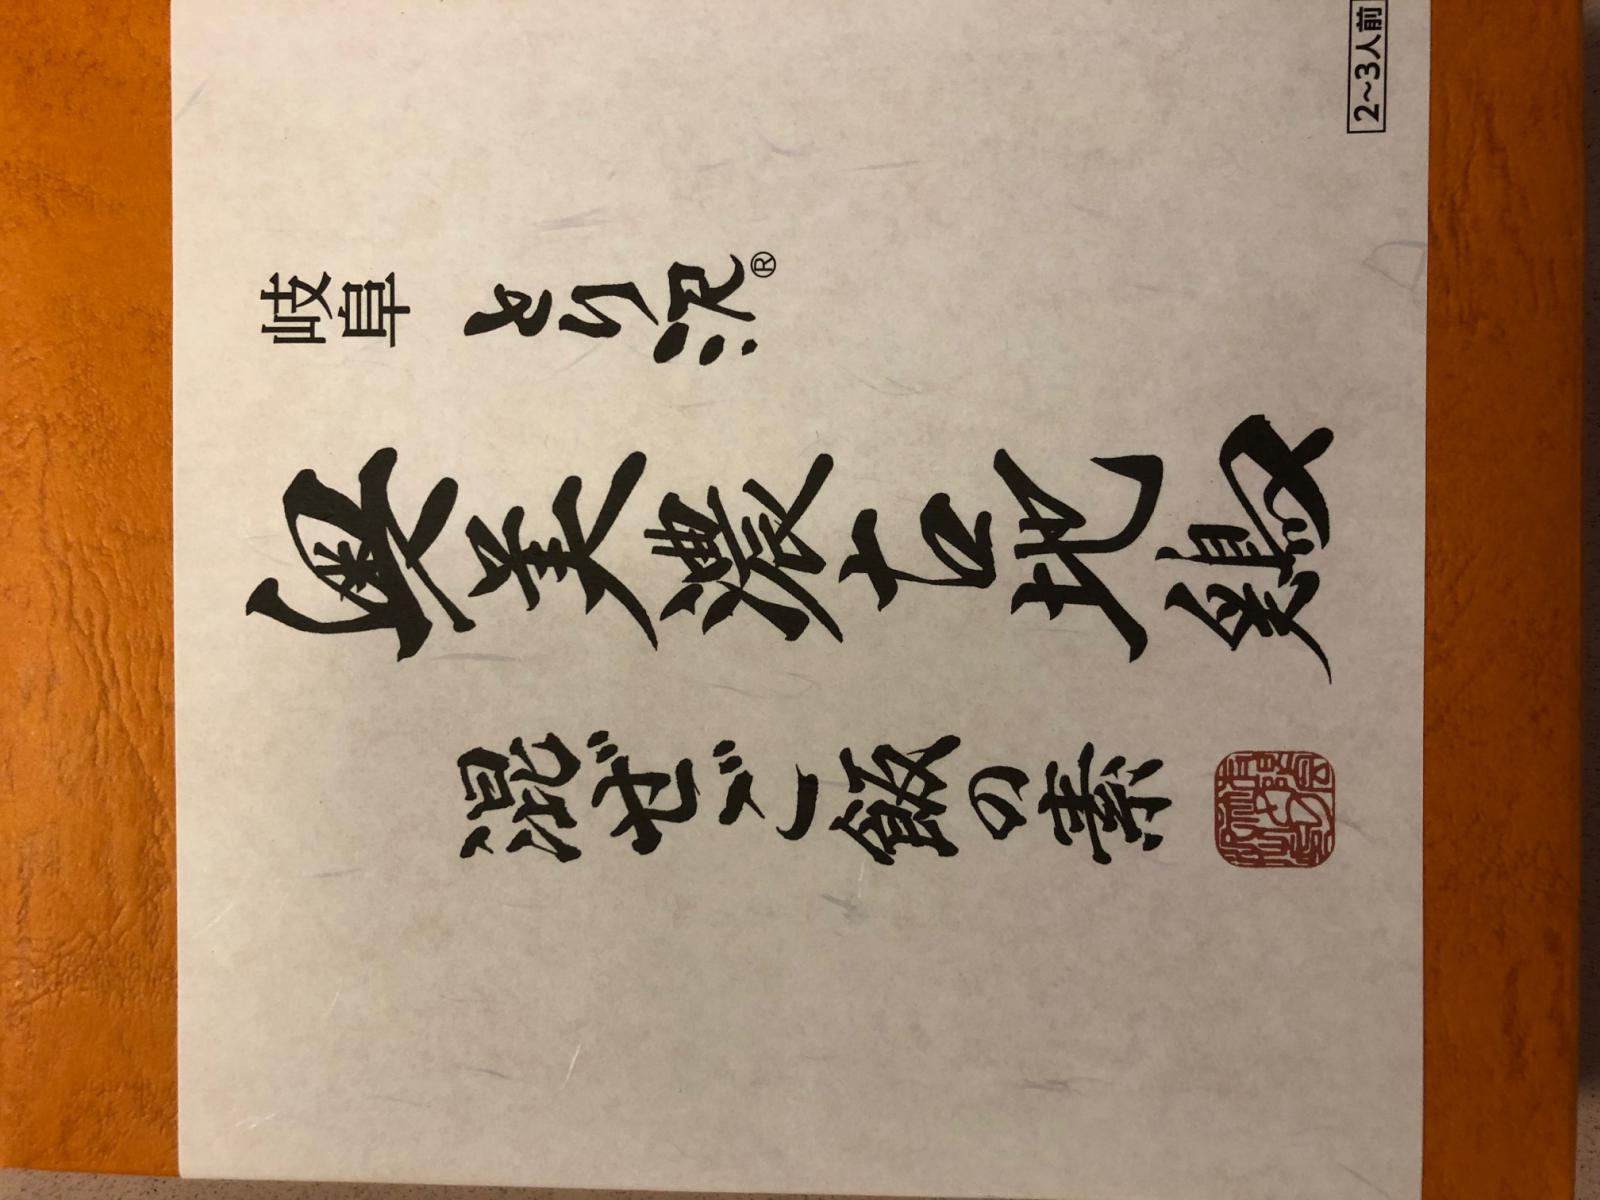 2~3人前
岐阜 とり沢®
奥美濃古地鶏
混ぜご飯の素